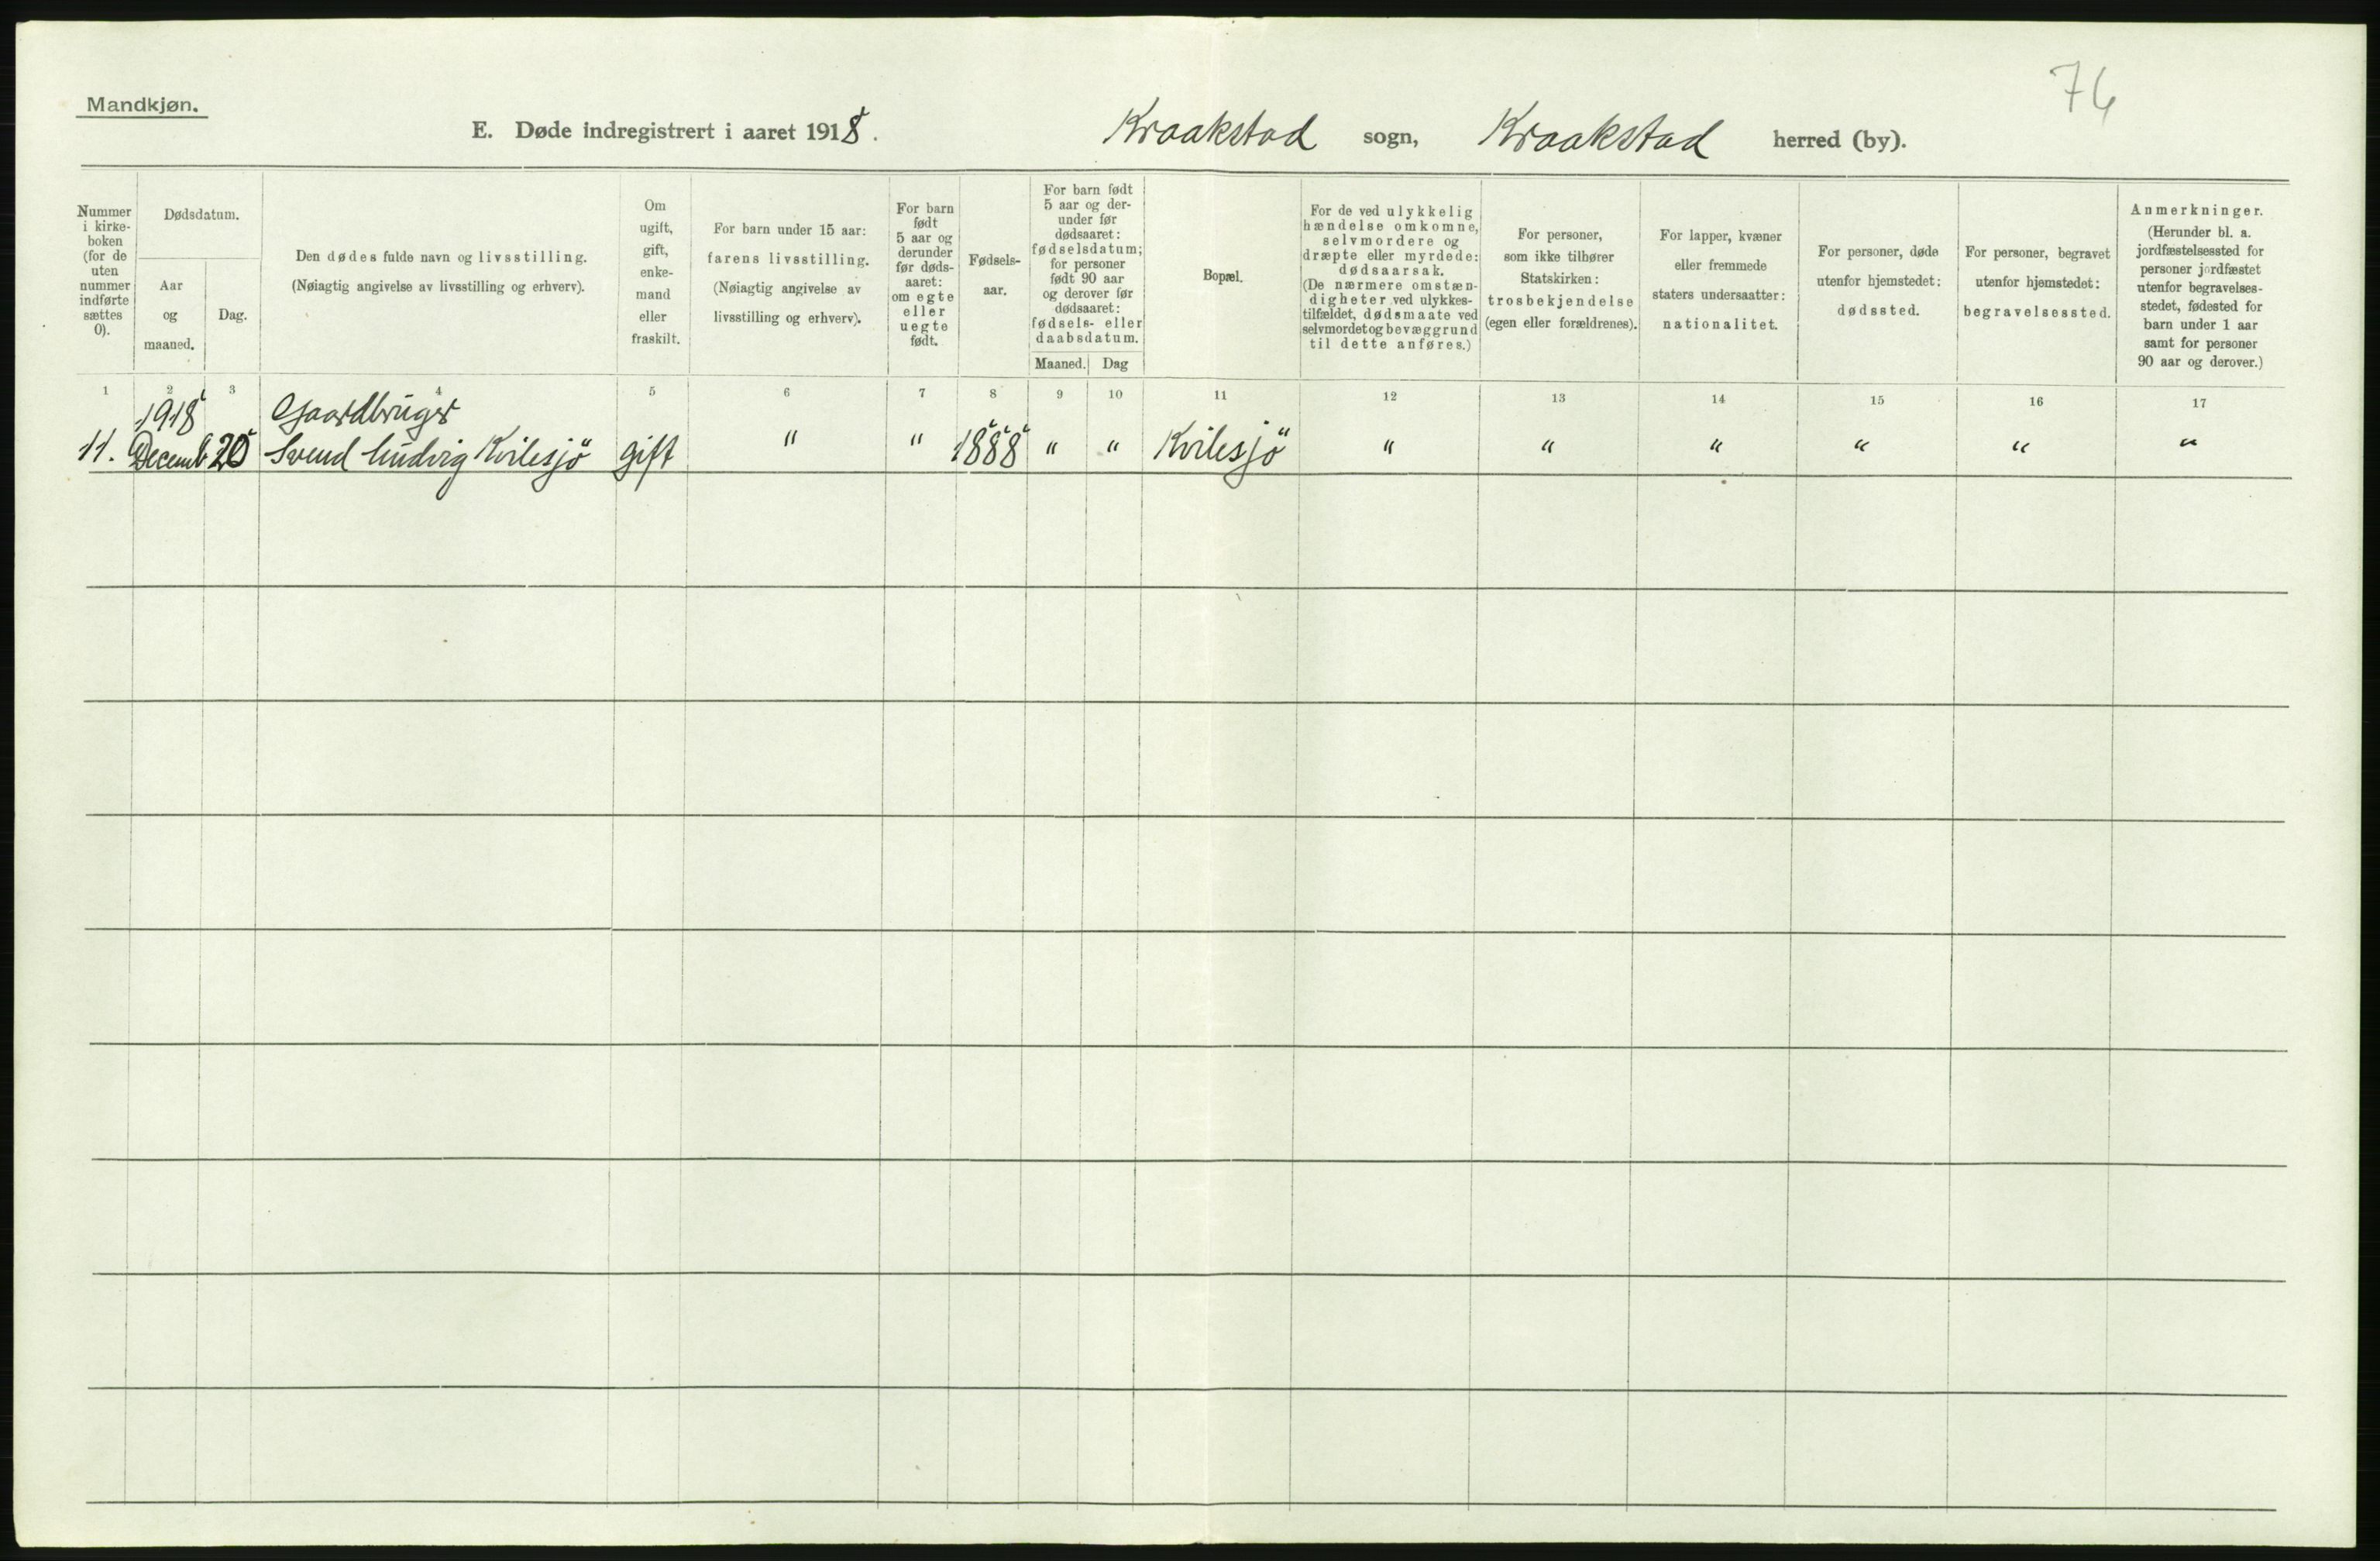 76
Mandkjøn.
E. Døde indregistrert i aaret 1918. Kraakstad sogn, Kraakstad herred (by).
Nummer
i kirke-
boken
(for de
uten
nummer
indførte
sættes
0).
Dødsdatum.
Aar
og
maaned.
Dag.
Den dødes fulde navn og livsstilling.
(Nøiagtig angivelse av livsstilling og erhverv).
Om
ugift,
gift,
enke-
mand
eller
fraskilt.
For barn under 15 aar:
farens livsstilling.
(Nøiagtig angivelse av
livsstilling og erhverv).
For barn
født
5 aar og
derunder
før døds-
aaret:
om egte
eller
uegte
født.
Fødsels-
aar.
For barn født
5 aar og der-
under før
dødsaaret:
fødselsdatum;
for personer
født 90 aar
og derover før
dødsaaret:
fødsels- eller
daabsdatum.
Maaned. Dag
Bopæl.
For de ved ulykkelig
hændelse omkomne,
selvmordere og
dræpte eller myrdede:
dødsaarsak.
(De nærmere omstæn-
digheter ved ulykkes-
tilfældet, dødsmaate ved
selvmordet og bevæggrund
til dette anføres.)
For personer,
som ikke tilhører
Statskirken:
trosbekjendelse
(egen eller forældrenes).
For lapper, kvæner
eller fremmede
staters undersaatter:
nationalitet.
For personer, døde
utenfor hjemstedet:
dødssted.
For personer, begravet
utenfor hjemstedet:
begravelsessted.
Anmerkninger.
(Herunder bl. a.
jordfæstelsessted for
personer jordfæstet
utenfor begravelses-
stedet, fødested for
barn under 1 aar
samt for personer
90 aar og derover.)
1 2 3 4 5 6 7 8 9 10 11 12 13 14 15 16 17
1918 Gaardbruger
11. Decemb 20 Svend Ludvig Kvilesjö gift " " 1888 " " Kvilesjö " " " " " "